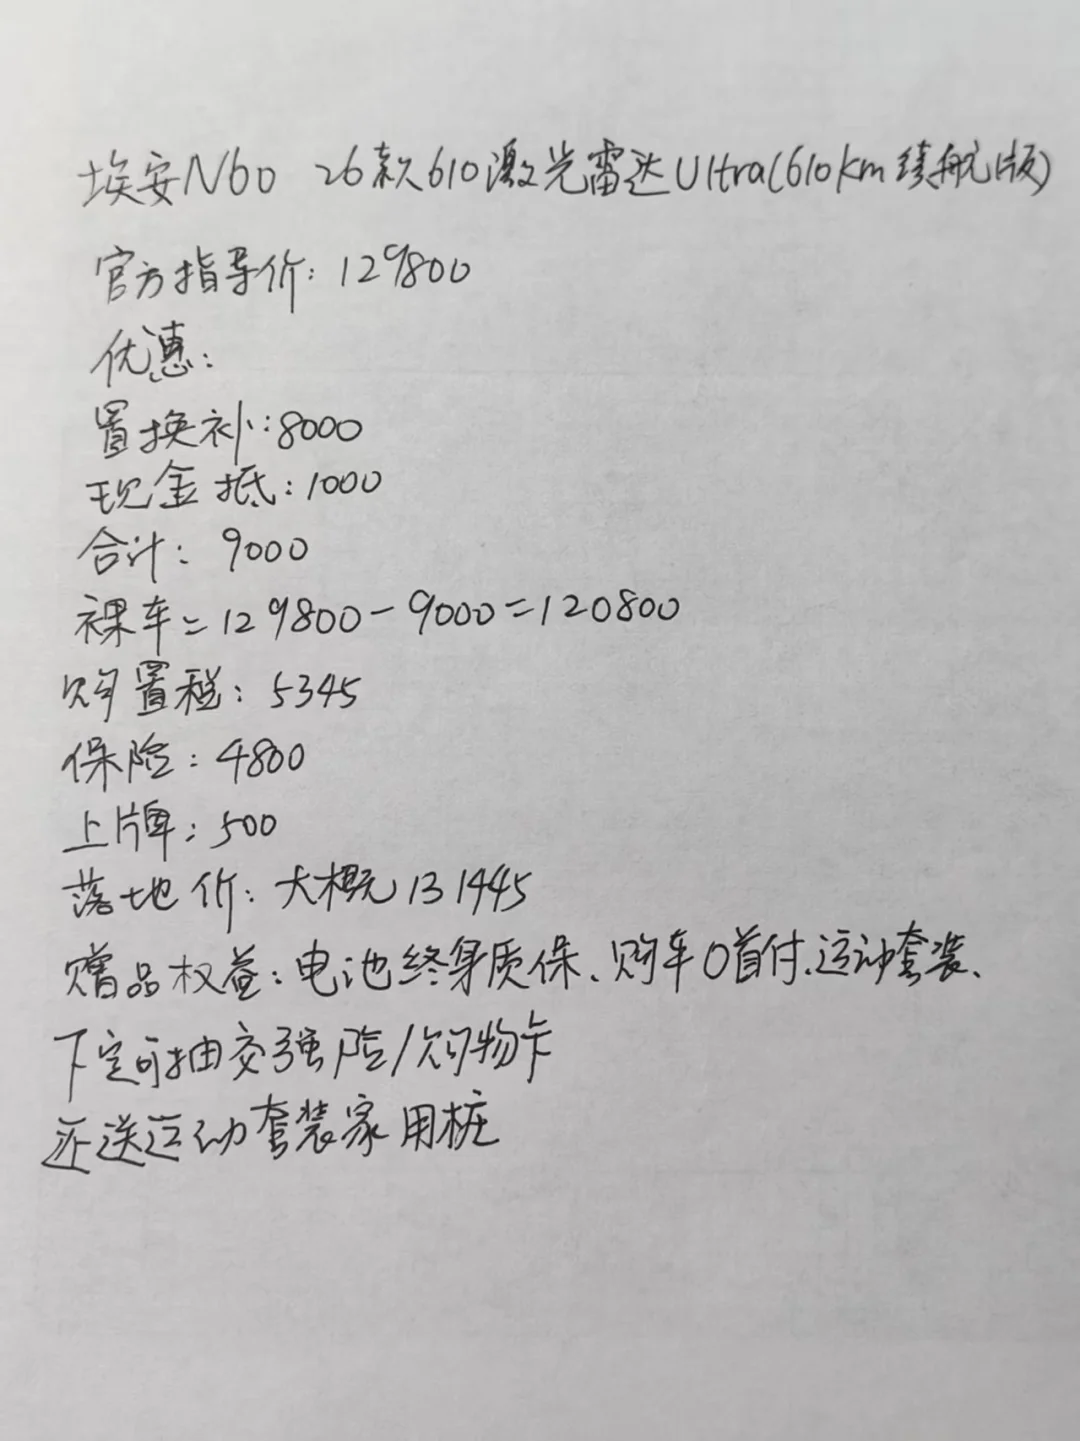 埃安N60 26款610激光雷达Ultra(610km续航版)
官方指导价：129800
优惠：
置换补：8000
现金抵：1000
合计：9000
裸车=129800-9000=120800
购置税：5345
保险：4800
上牌：500
落地价：大概131445
赠品权益：电池终身质保、购车0首付、运动套装、
下定可抽交强险/购物卡
还送运动套装家用桩